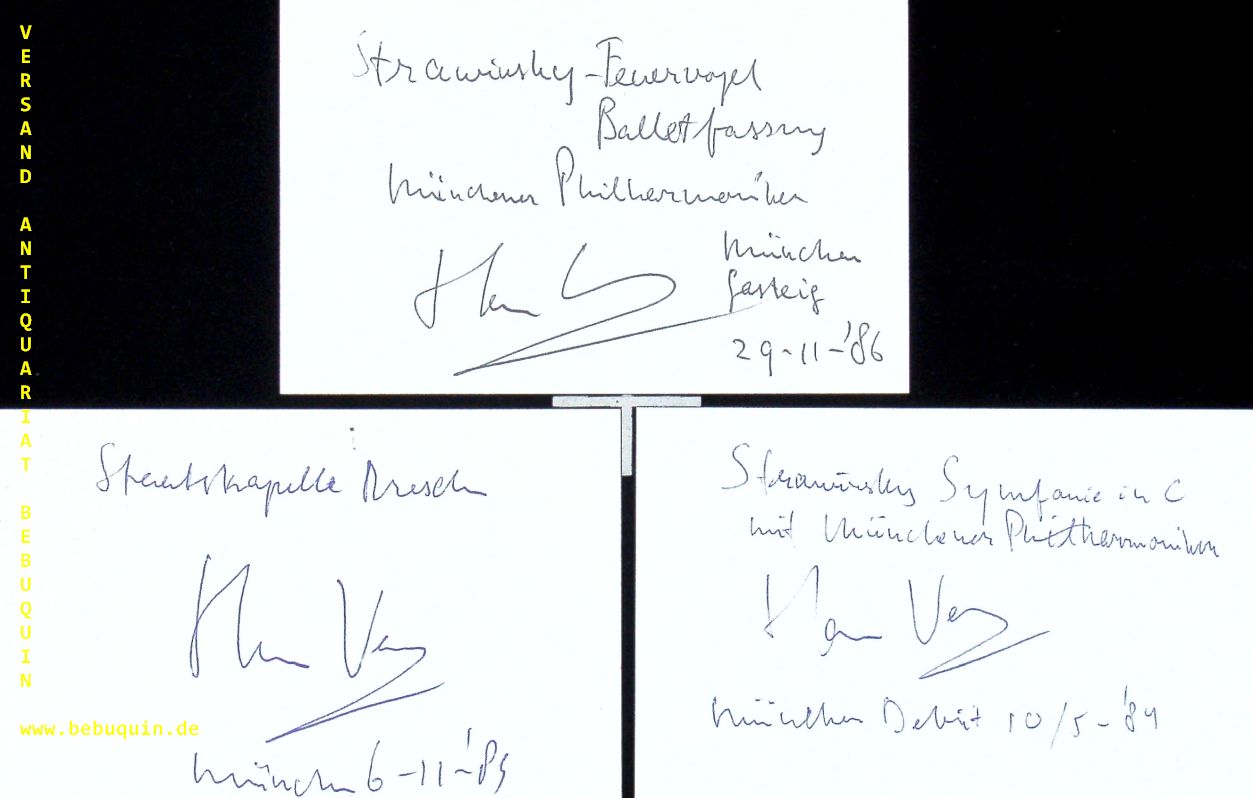 VERSAND ANTIQUARIAT BEBUQUIN
www.bebuquin.de
Strawinsky - Feuervogel
Balletfassung
Münchener Philharmoniker
München
Gasteig
29-11-'86
Staatskapelle Dresden
Hans Vonk
München 6-11-'85
Strawinsky Symfonie in C
mit Münchener Philharmoniker
Hans Vonk
München Debüt 10/5-'84